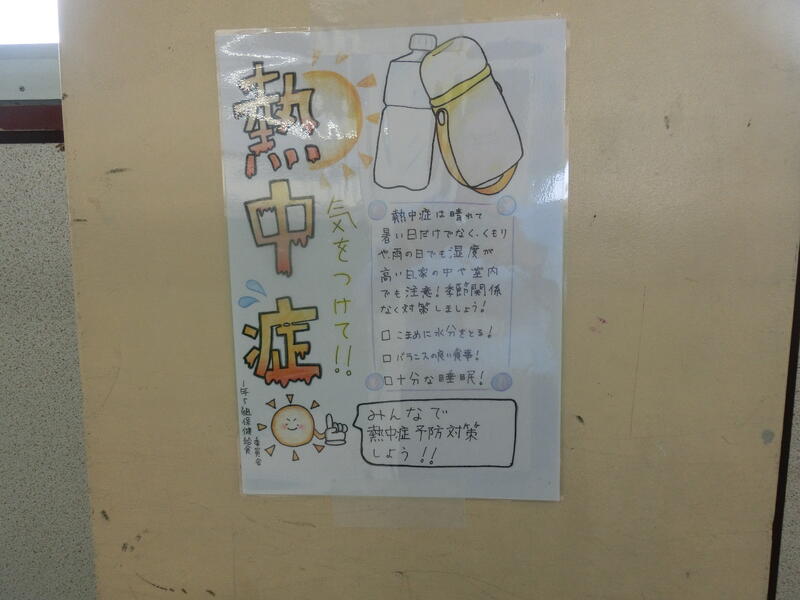 熱中症
気をつけて!!
熱中症は晴れて
暑い日だけでなく、くもり
や、雨の日でも湿度が
高い日、家の中や室内
でも注意!季節関係
なく対策しましょう!
□ こまめに水分をとる!
□ バランスの良い食事!
□ 十分な睡眠!
みんなで
熱中症予防対策
しよう!!
1年5組保健給食
委員会